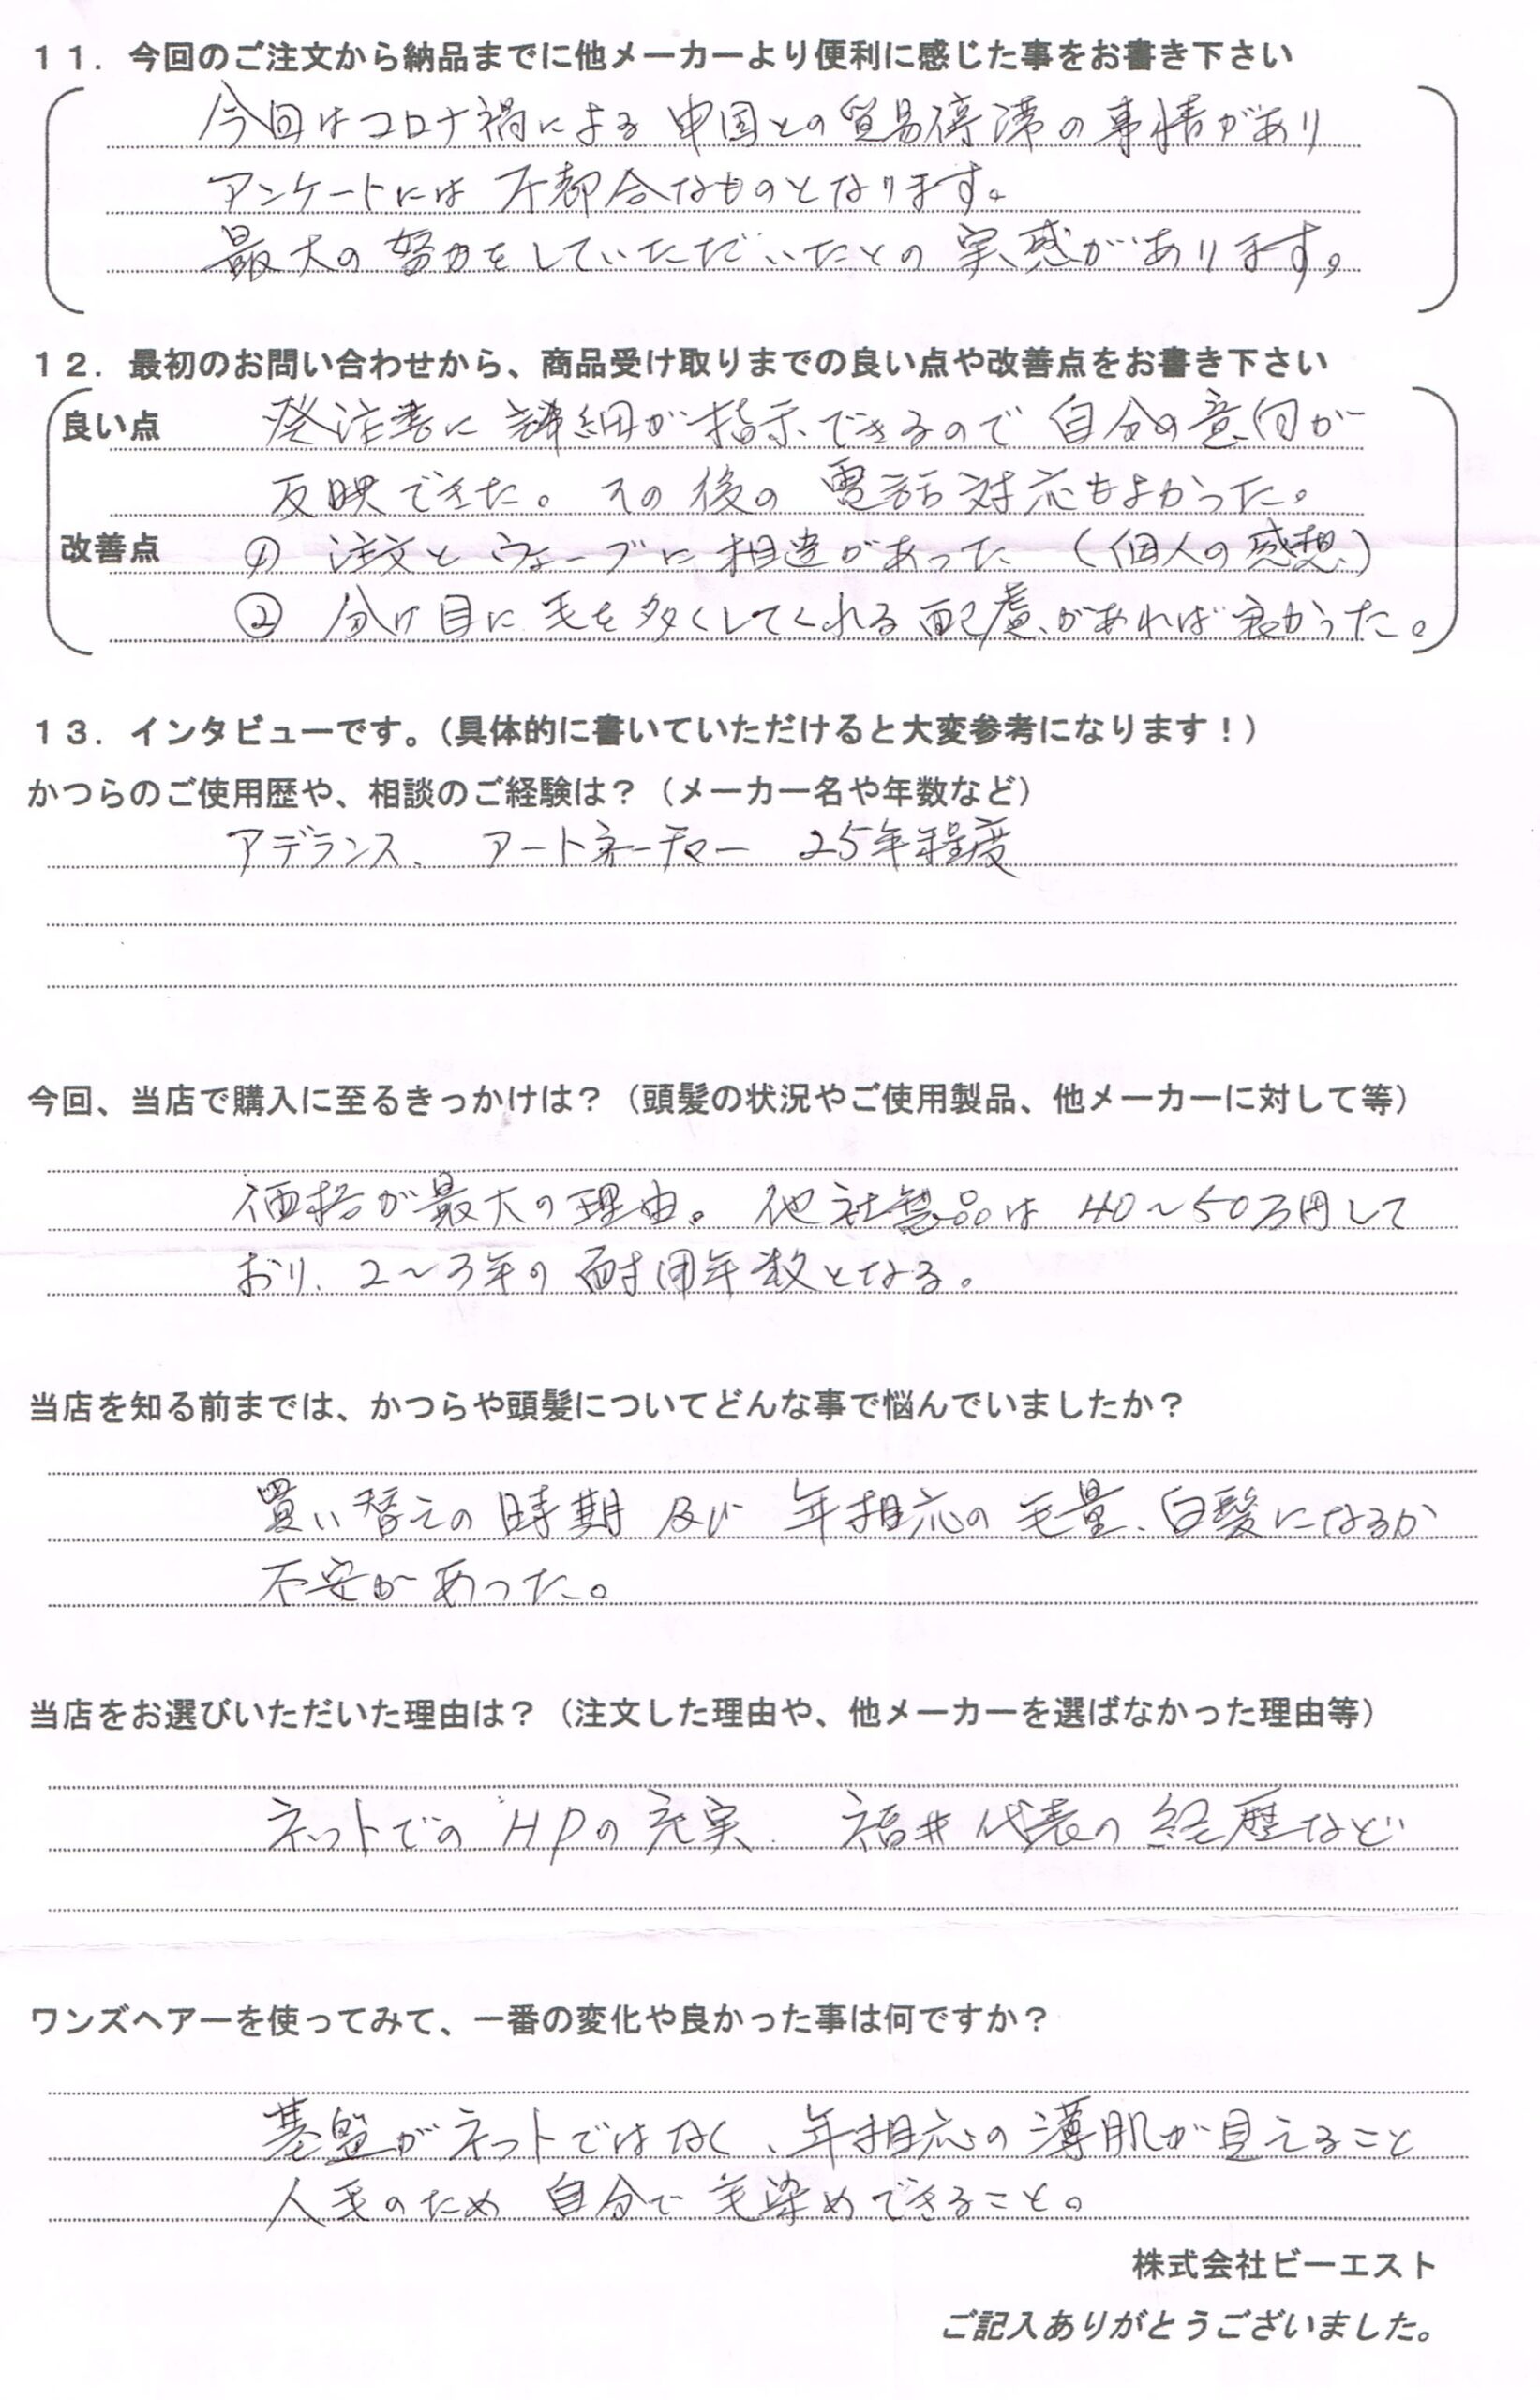 １１．今回のご注文から納品までに他メーカーより便利に感じた事をお書き下さい
今回はコロナ禍による中国との貿易停滞の事情があり
アンケートには不都合なものとなります。
最大の努力をしていただいたとの実感があります。
１２．最初のお問い合わせから、商品受け取りまでの良い点や改善点をお書き下さい
良い点 発注書に詳細が指示できるので自分の意向が
反映できた。その後の電話対応もよかった。
改善点 ① 注文とウェーブに相違があった（個人の感想）
② 分け目に毛を多くしてくれる配慮があれば良かった。
１３．インタビューです。（具体的に書いていただけると大変参考になります！）
かつらのご使用歴や、相談のご経験は？（メーカー名や年数など）
アデランス、アートネーチャー 25年程度
今回、当店で購入に至るきっかけは？（頭髪の状況やご使用製品、他メーカーに対して等）
価格が最大の理由。他社製品は40～50万円して
おり、2～3年の耐用年数となる。
当店を知る前までは、かつらや頭髪についてどんな事で悩んでいましたか？
買い替えの時期及び年相応の毛量、白髪になるか
不安があった。
当店をお選びいただいた理由は？（注文した理由や、他メーカーを選ばなかった理由等）
ネットでのHPの充実、福井代表の経歴など
ワンズヘアーを使ってみて、一番の変化や良かった事は何ですか？
基盤がネットではなく、年相応の薄肌が見えること
人毛のため自分で毛染めできること。
株式会社ビーエスト
ご記入ありがとうございました。